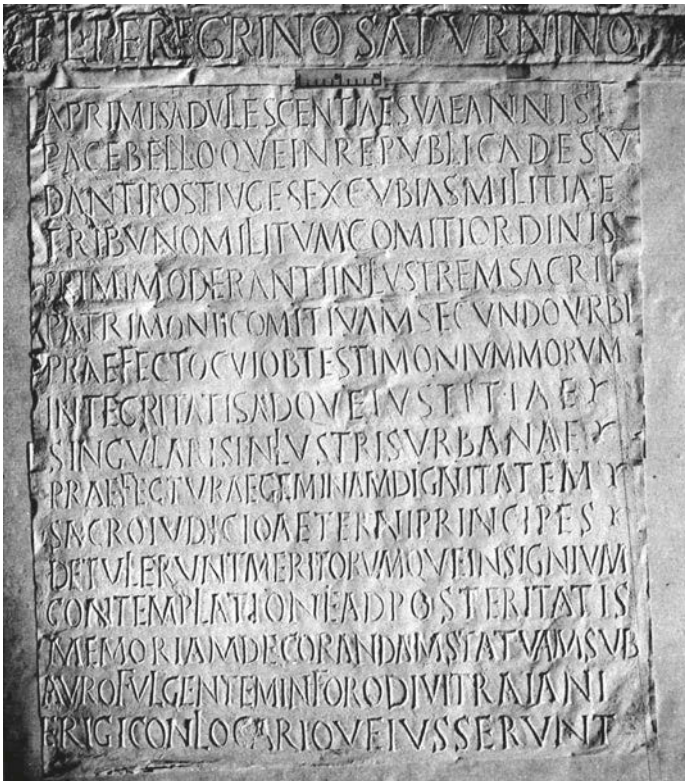 FL PEREGRINO SATVRNINO
A PRIMIS ADVLESCENTIAE SVAE ANNIS
PACE BELLOQVE IN REPVBLICA DESV
DANTI POST IVGES EXCVBIAS MILITIAE
TRIBVNO MILITVM COMITI ORDINIS
PRIMI MODERANTI INLVSTREM SACRII
PATRIMONII COMITIVAM SECVNDO VRBI
PRAEFECTO CVI OB TESTIMONIVM MORVM
INTEGRITATIS ADQVE IVSTITIAE
SINGVLARIS INLVSTRIS VRBANAE
PRAEFECTVRAE GEMINAM DIGNITATEM
SACRO IVDICIO AETERNI PRINCIPES
DETVLERVNT MERITORVMQVE INSIGNIVM
CONTEMPLATIONE AD POSTERITATIS
MEMORIAM DECORANDAM STATVAM SVB
AVRO FVLGENTEM IN FORO DIVI TRAIANI
ERIGI CONLOCARIQVE IVSSERVNT